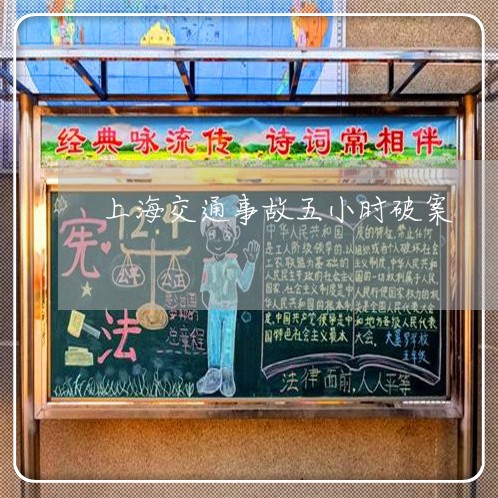 经典咏流传 诗词常相伴
上海交通事故五小时破案
12.4
宪
法
公平 公正
总章程
中华人民共和国
是工人阶级领导的,以
工农联盟为基础的
人民民主专政的社会主义
国家,社会主义制度是中
华人民共和国的根本制
度,中国共产党领导是中
国特色社会主义最本
质的特征,禁止任何
组织或者个人破坏社会
主义制度,中华人民共和
国的一切权利属于人民,
人民行使国家权力的机
关是全国人民代表大会
和地方各级人民代表
大会。
五年级
法律面前,人人平等